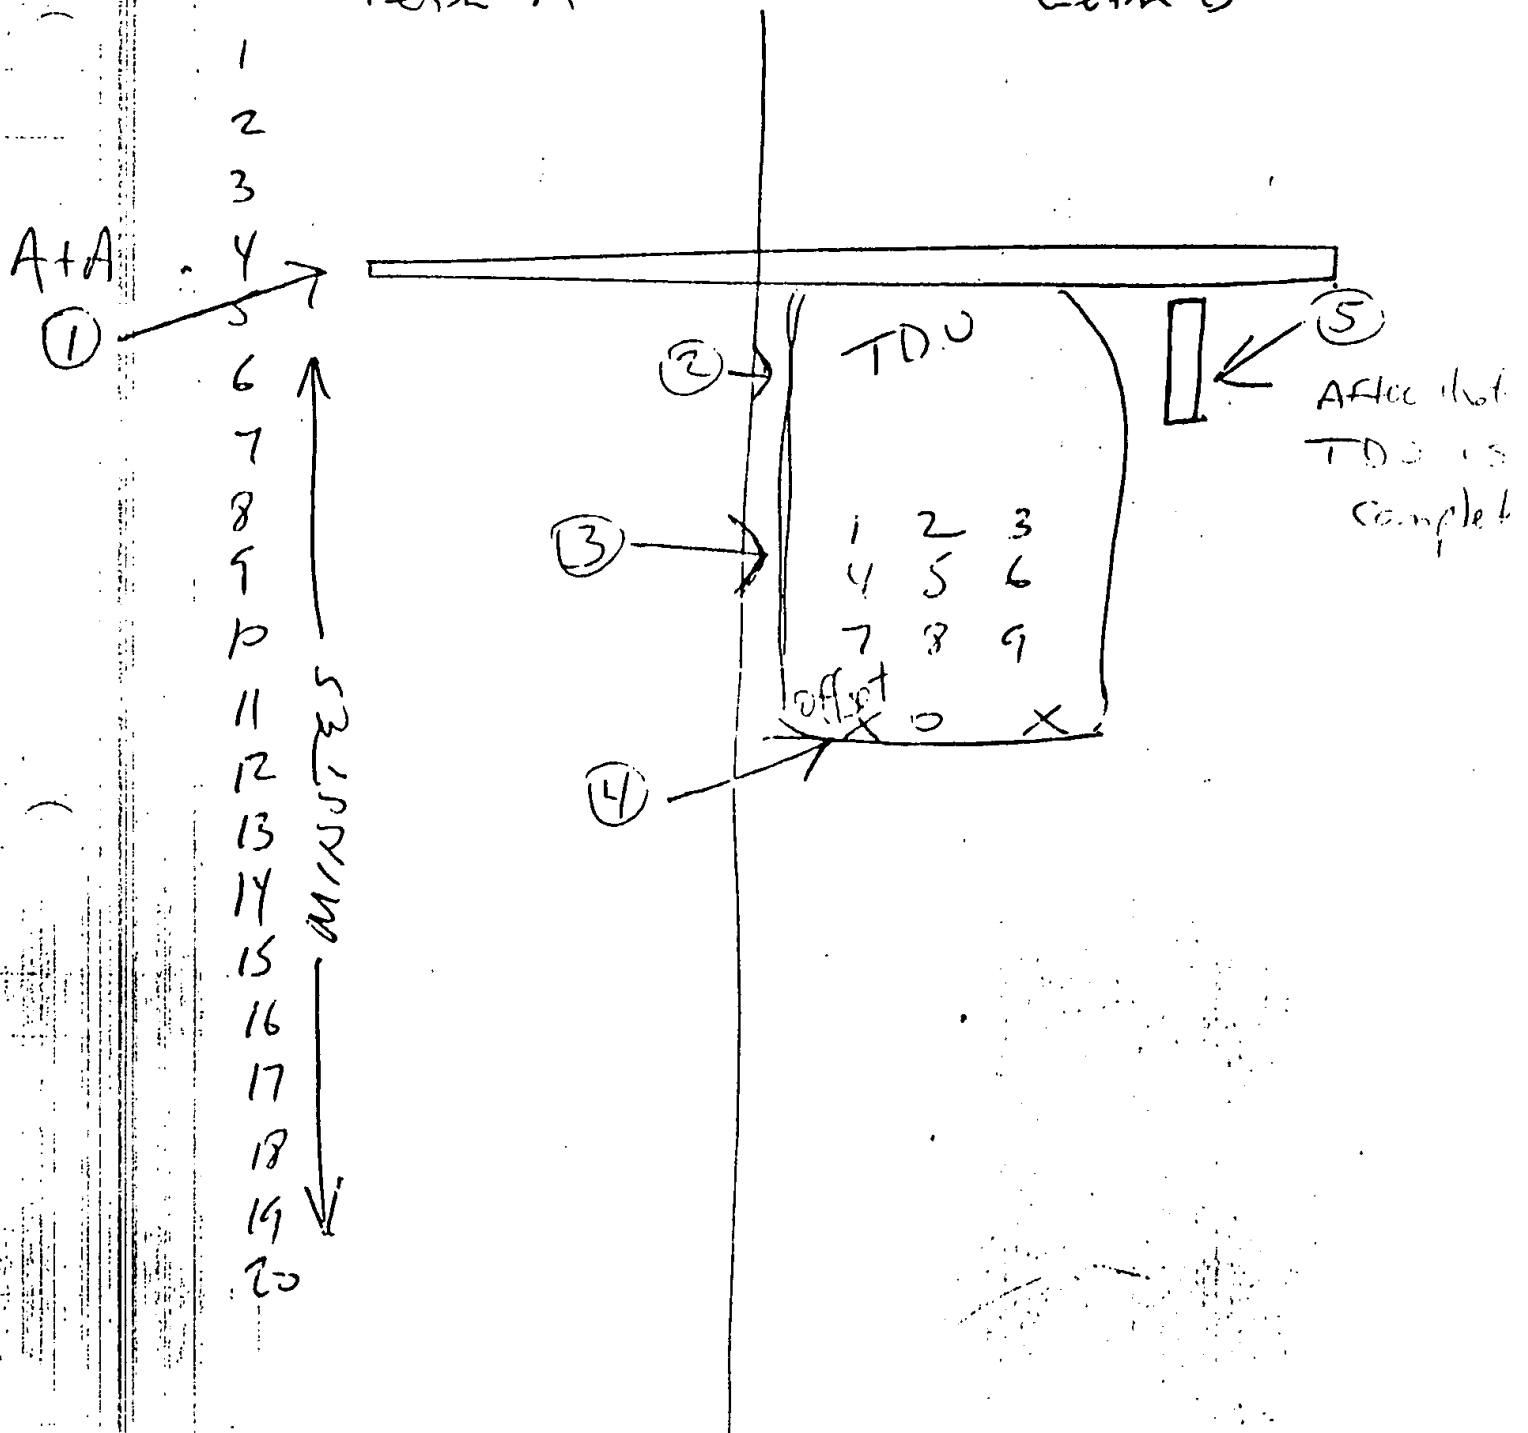 1
2
3
A+A 4
① 5
6
7
8
9
10
11
12
13
14
15
16
17
18
19
20
MINUTES
②
TDU
③
1 2 3
4 5 6
7 8 9
offset
X 0 X
④
⑤
After that
TDU is